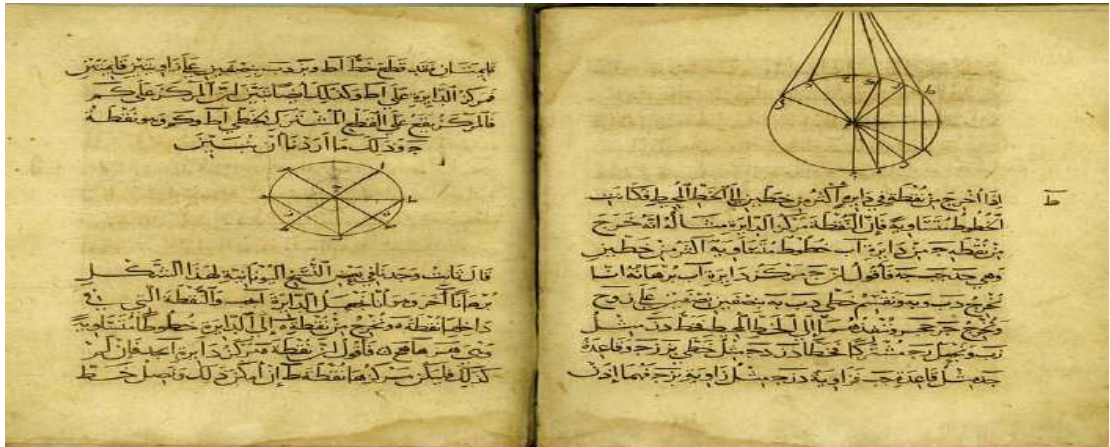 ط
اذا اخرج من نقطة في دايرة اكثر من خطين الى الخط المحيط فكانت
الخطوط متساوية فان النقطة مركز الدايرة مثاله انه خرج
من نقطة ج من دايرة اب خطوط متساوية اكثر من خطين
وهي جد جب جه فاقول ان ج مركز دايرة اب برهانه انا
نخرج دب وبه ونقسم خطي دب به بنصفين على ز وح
ونخرج جز جح وننفذهما الى الخط المحيط فخط دز مثل
زب ونجعل زج مشتركا فخطا دز زج مثل خطي بز زج وقاعدة
جد مثل قاعدة جب فزاوية دزج مثل زاوية بزج فهما اذن
قايمتان فقد قطع خط اط وتر دب بنصفين على زاويتين قايمتين
فمركز الدايرة على اط وكذلك ايضا نبين ان المركز على كم
فالمركز يقع على القطع المشترك لخطي اط وهو نقطة
ج وذلك ما اردنا ان نبين
قال ثابت وجدنا في بعض النسخ اليونانية لهذا الشكل
برهانا آخر وهو انا نجعل الدايرة والنقطة التي في
داخلها نقطة ه ونخرج من نقطة ه الى الدايرة خطوطا متساوية
وهي فاقول ان نقطة ه مركز دايرة ابجد فان لم
كذلك فليكن مركزها نقطة ط ان امكن ذلك ونصل خط